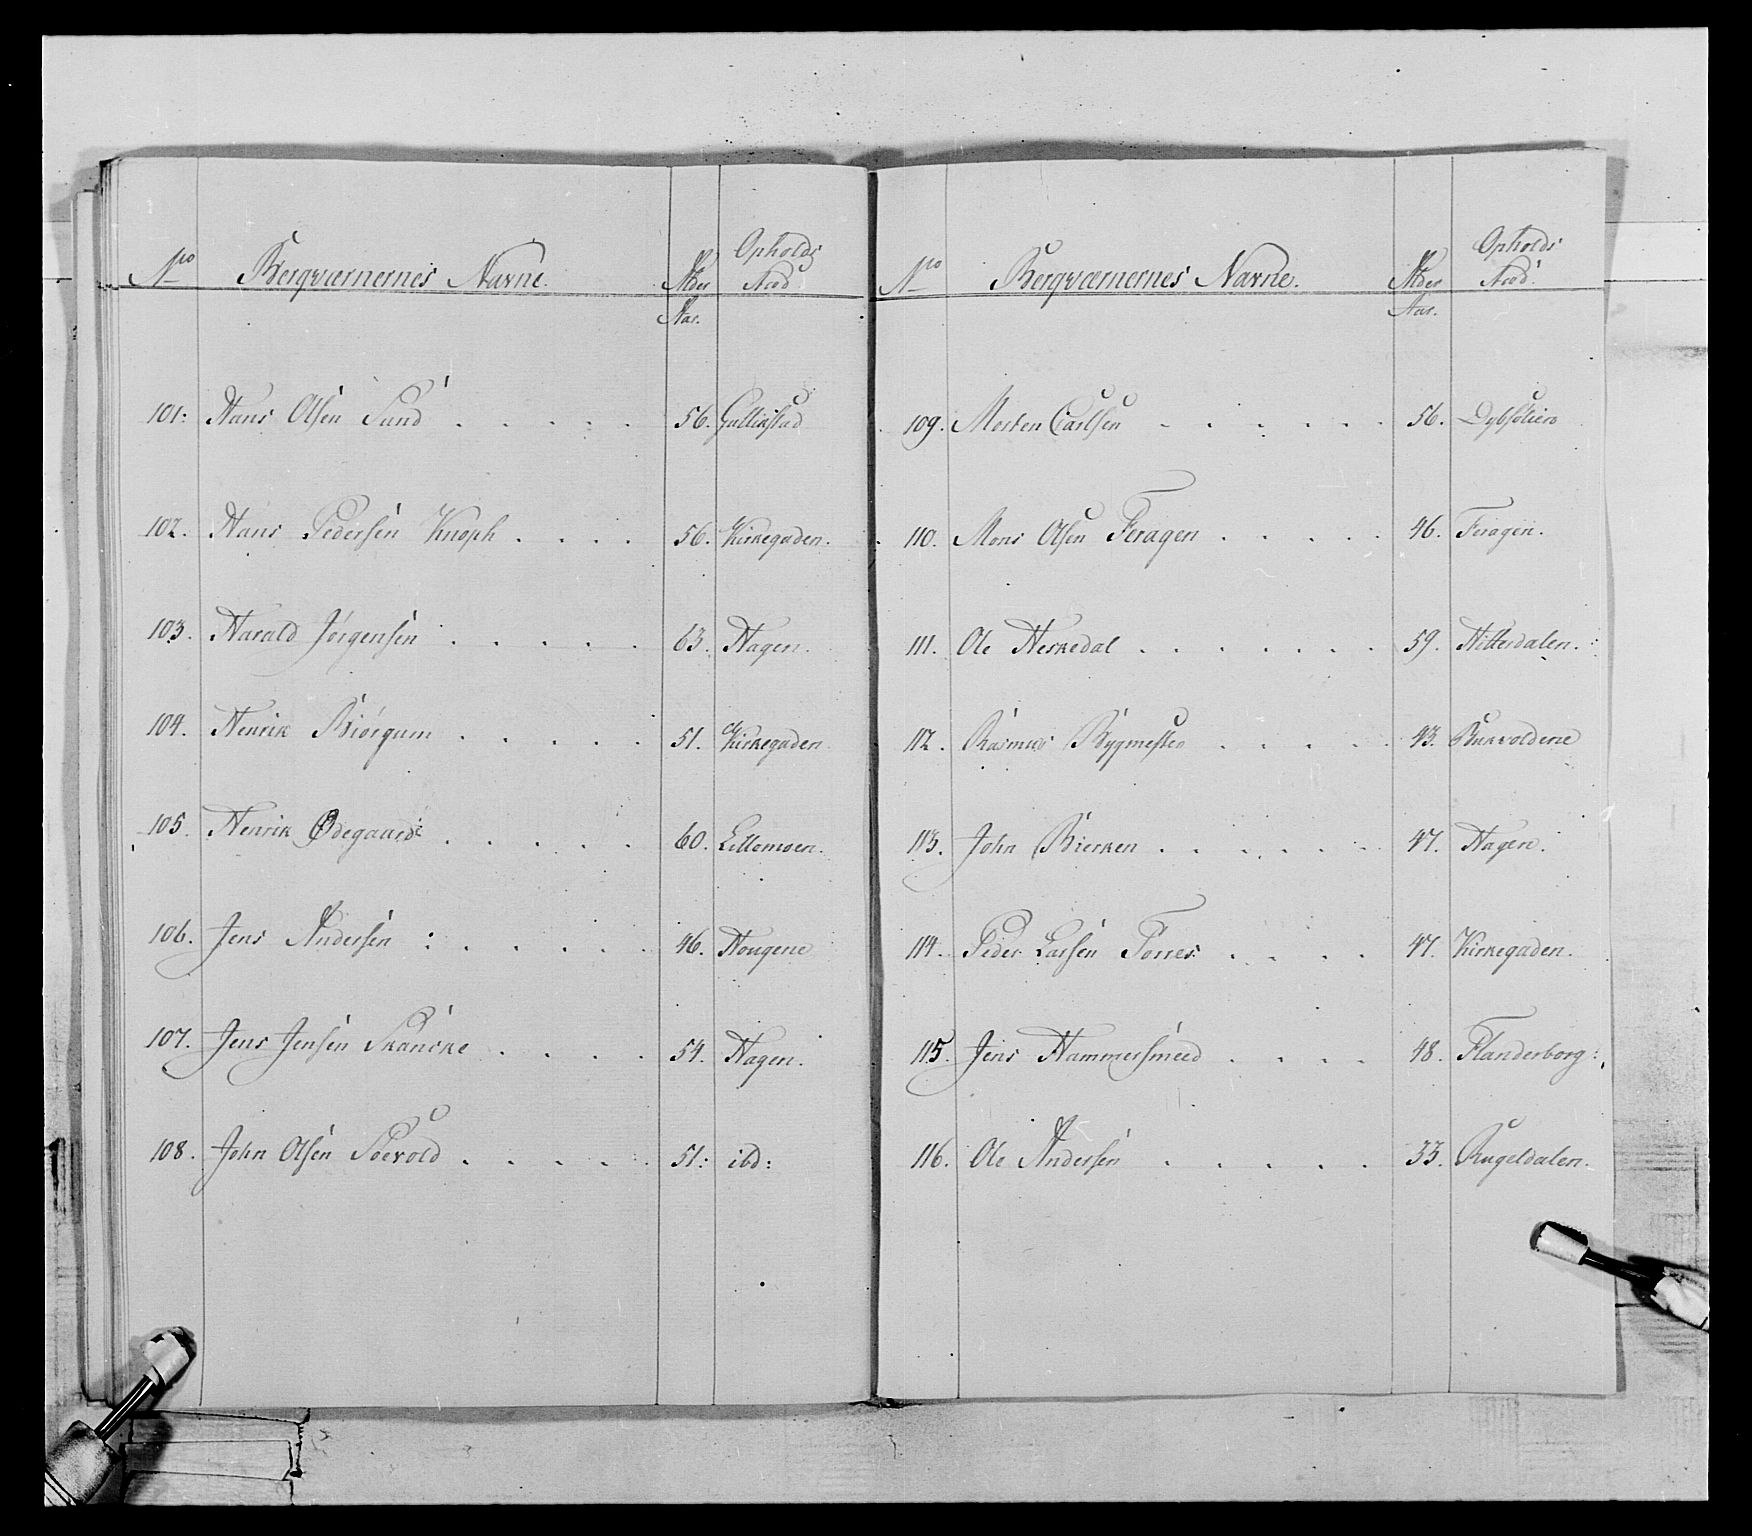 No Bergværnernes Navne. Alder Opholds Stæd
Aar.
101: Hans Olsen Sund . . . . . 56. Gullikstad
102. Hans Pedersen Knoph . . . . 56. Kirkegaden.
103. Harald Jørgensen . . . . . 63. Hagen.
104. Henrik Biørgum . . . . . 51. Kirkegaden
105. Henrik Ødegaard: . . . . . 60. Lillemoen.
106. Jens Andersen : . . . . . 46. Hougene
107. Jens Jensen Skancke . . . . 54. Hagen.
108. John Olsen Soevold . . . . . 51: ibd:
No Bergværnernes Navne. Alder Opholds Stæd.
Aar.
109. Morten Carlsen . . . . . . 56.
110. Mons Olsen Feragen . . . . . 46. Feragen.
111. Ole Herkedal . . . . . . . 59. Hitterdalen.
112. Rasmus Bygmester . . . . . 43.
113. John Bierken . . . . . . 47. Hagen.
114. Peder Larsen Torres . . . . 47. Kirkegaden.
115. Jens Hammersmeed . . . . 48. Flanderborg:
116. Ole Andersen . . . . . 33. Rugeldalen.